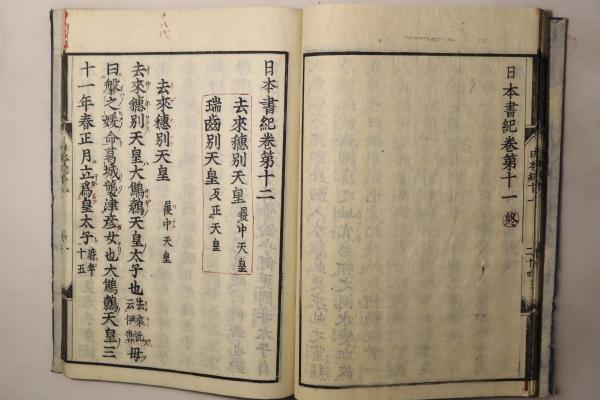 日本書紀卷第十一 終
日本書紀卷第十二
去來穗別天皇 履中天皇
瑞齒別天皇 反正天皇
去來穗別天皇 履中天皇
去來穗別天皇大鷦鷯天皇太子也 去來此云伊弉 母
曰磐之媛命葛城襲津彥女也大鷦鷯天皇三
十一年春正月立爲皇太子 時年十五
十八代